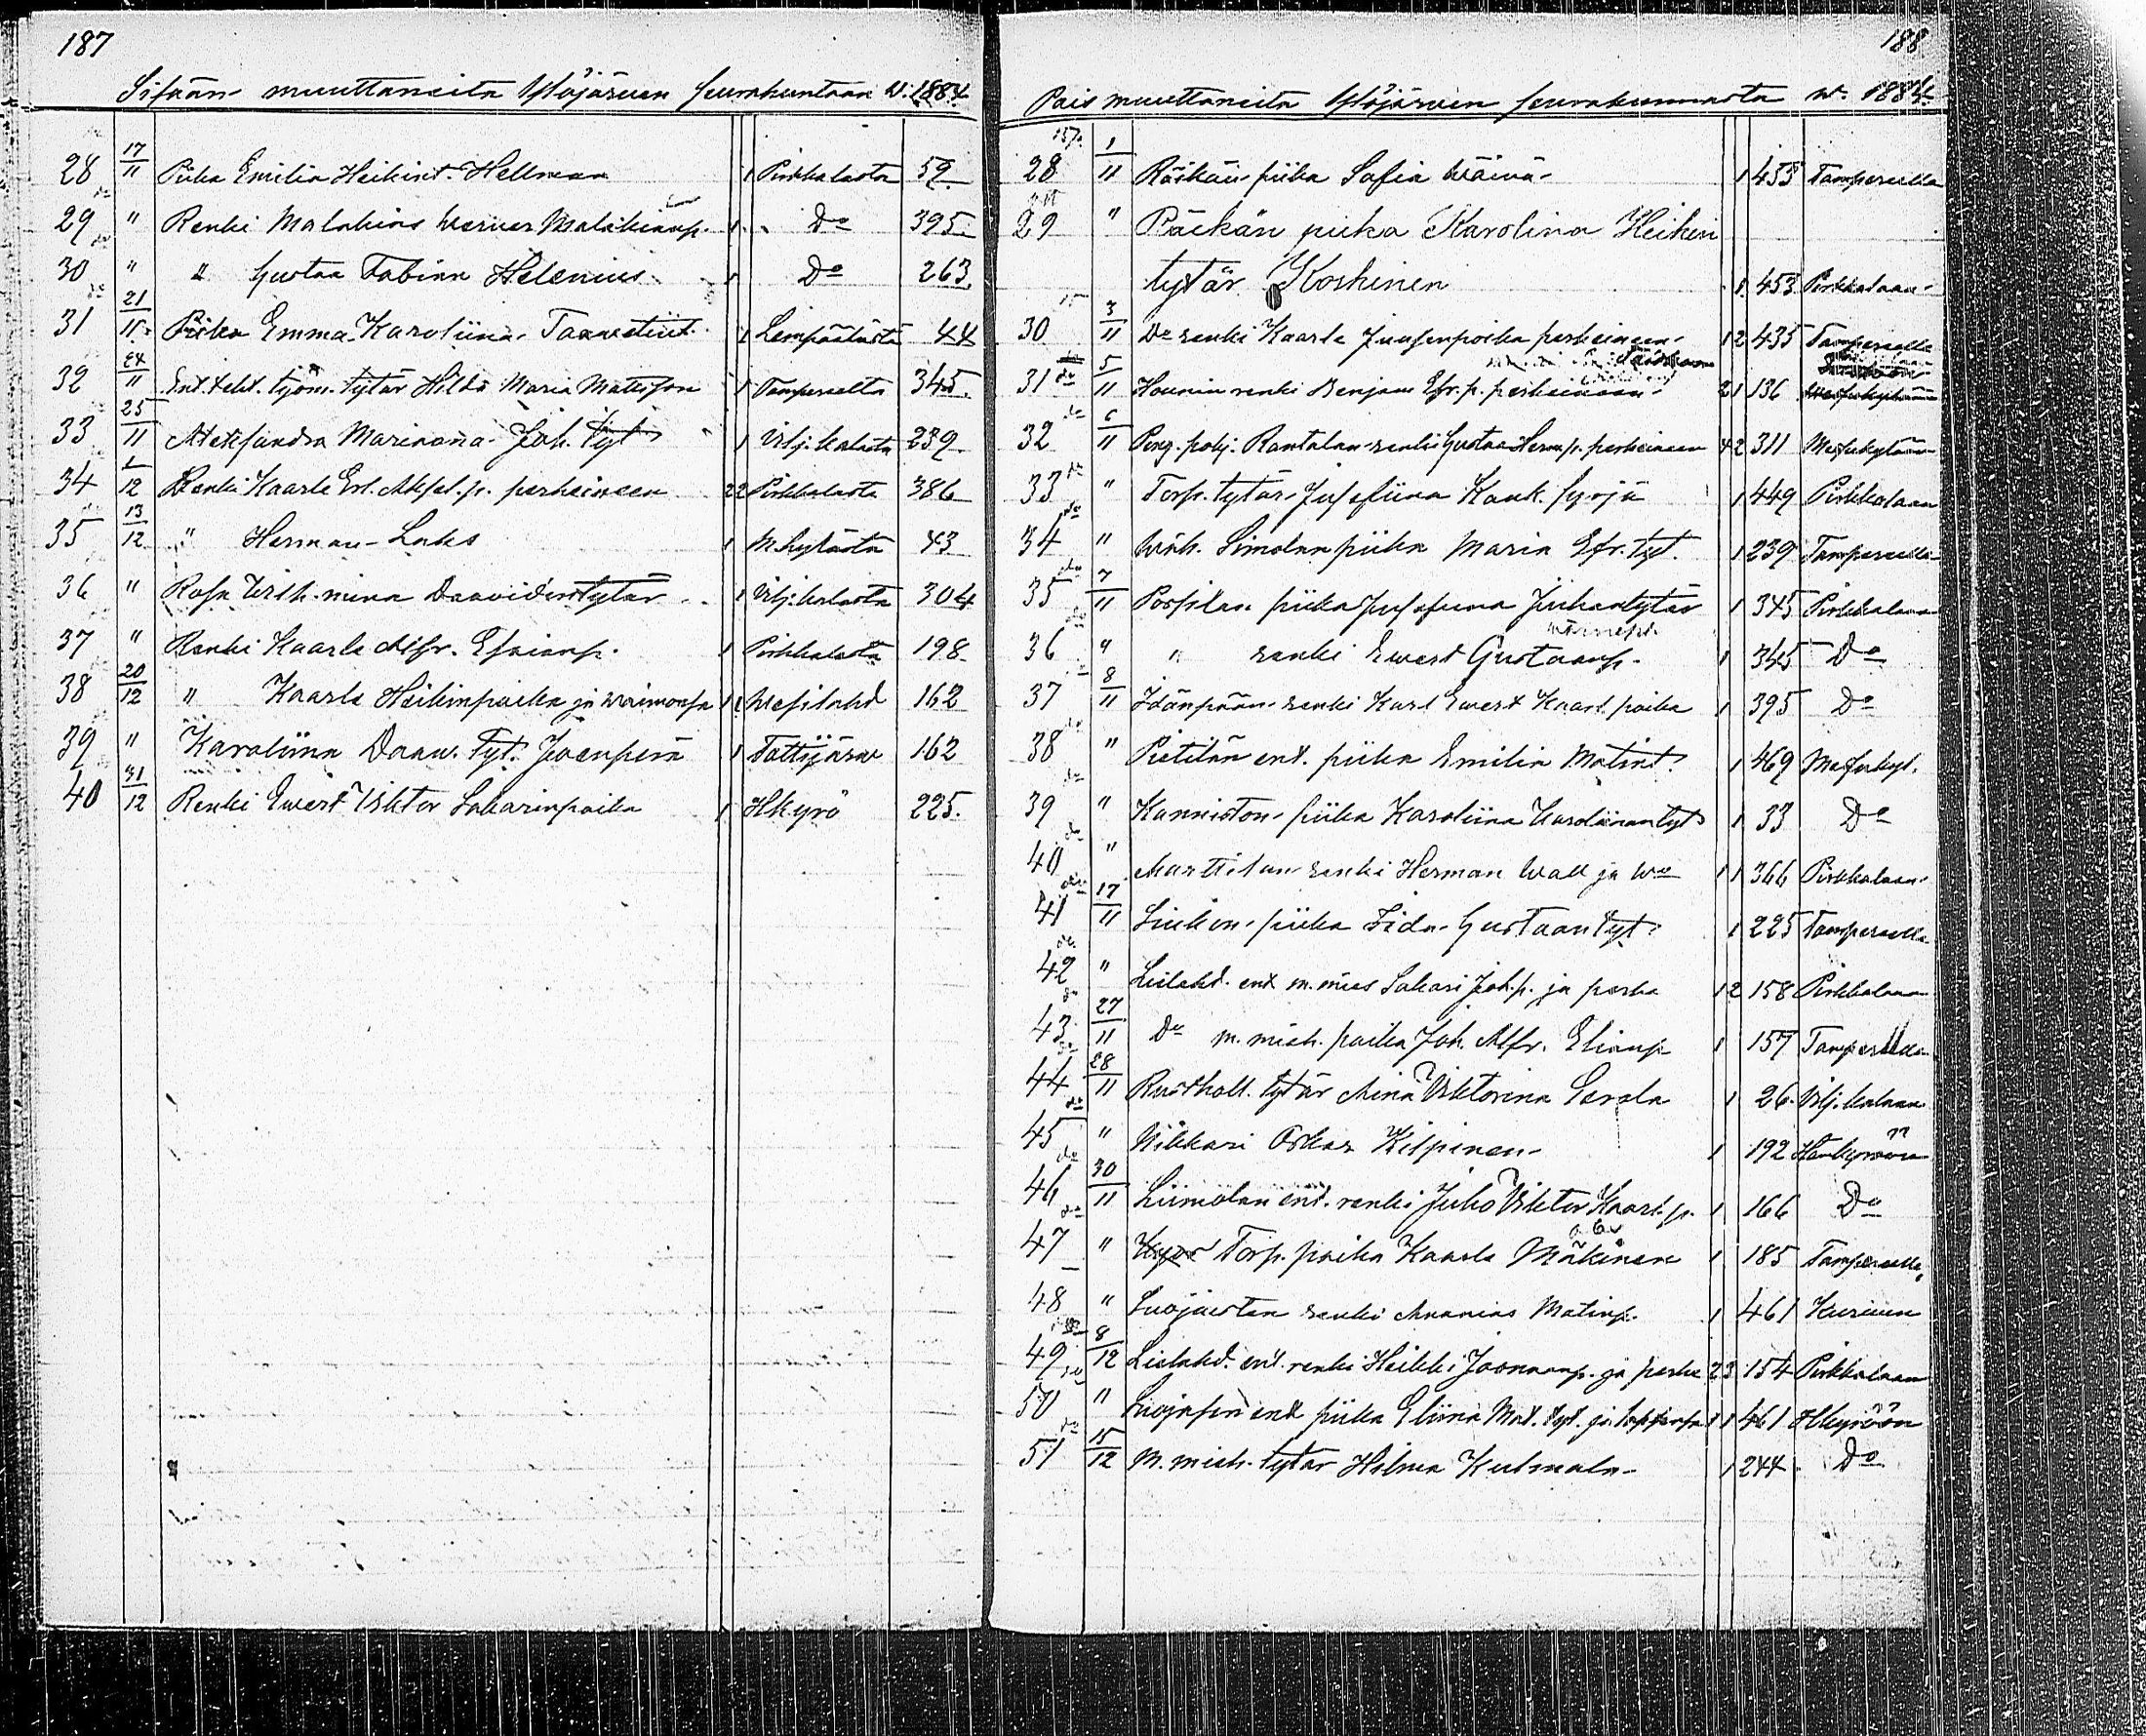 187
Sisään muuttaneita Ylöjärven seurakuntaan w. 1884.
28 17/11 Piika Emilia Heikint. Hellman 1 Pirkkalasta 59
29 " Renki Malakias Werner Malakianp. 1 Do 395
30 " " Gustaa Fabian Helenius 1 Do 263
31 21/11 Piika Emma Karoliina Taavetint. 1 Lempäälästä 44
32 24/11 Ent. teht. työm. tytär Hilda Maria Mattsson 1 Tampereelta 345
33 25/11 Aleksandra Mariana Joh. tyt. 1 Vilj.kalasta 239
34 1/12 Renki Kaarle Erl. Aksel. p. perheineen 2 2 Pirkkalasta 386
35 13/12 " Herman Laks 1 M.kylästä 43
36 " Rosa Wilh.mina Daavidintytär 1 Vilj.kalasta 304
37 " Renki Kaarle Alfr. Esaianp. 1 Pirkkalasta 198
38 20/12 " Kaarle Heikinpoika ja waimonsa 1 1 Wesilahd 162
39 " Karoliina Daav. tyt. Joenperä 1 Tottijärv 162
40 31/12 Renki Ewert Viktor Sakarinpoika 1 Hkyrö 225.
188
Pois muuttaneita Ylöjärven seurakunnasta w. 1884.
28 1/11 Räikän piika Sofia Wäinä 1 453 Tampereelle
29 " Räikän piika Karolina Heikin
tytär Koskinen 1 453 Pirkkalaan
30 3/11 Do renki Kaarle Juusenpoika perheineen 1 2 435 Tampereelle
31 5/11 renki Benjam Efr. p. perheineen 2 1 136
32 6/11 Peng. pohj. Rantalan renki Gustaa Herm. p. perheineen 4 2 311 Messukylään
33 " Torp. tytär Josefiina Kauk. 1 449 Pirkkalaan
34 " Wäh. Simolan piika Maria Efr. tyt. 1 239 Tampereelle
35 7/11 Possilan piika Josefiina Juhantytär 1 345 Pirkkalaan
36 " " renki Ewert Gustaanp. 1 345 Do
37 8/11 Idänpään renki Karl Ewert Kaarl. poika 1 395 Do
38 " Pietilän ent. piika Emilia Matint. 1 469 Messukyl.
39 " Kanniston piika Karoliina Karoliinantyt. 1 33 Do
40 " Marttilan renki Herman Wall ja Wo 1 1 366 Pirkkalaan
41 17/11 piika Fida Gustaantyt. 1 225 Tampereelle
42 " Lielahd. ent m.mies Sakari Joh.p. ja perhe 1 2 158 Pirkkalaan
43 27/11 Do m. mieh. poika Joh. Alfr. Elianp. 1 157 Tampereelle
44 28/11 Rustholl. tytär Mina Viktorina Gerola 1 26 Vilj.kalaan
45 " Nikkari Oskar Kilpinen 1 192 Hämkyröön
46 30/11 Liimolan ent. renki Juho Viktor Kaarl. p. 1 166 Do
47 " Torp. poika Kaarle Mäkinen 1 185 Tampereelle
48 " renki Ananias Matinp. 1 461 Kuruun
49 8/12 Lielahd. ent. renki Heikki Joonaanp. ja perhe 2 3 154 Pirkkalaan
50 " ent piika Eliina Mat. tyt. ja lapsensa 1 1 461 Hkyröön
51 15/12 M. mieh. tytär Hilma Kulmala 1 244 Do